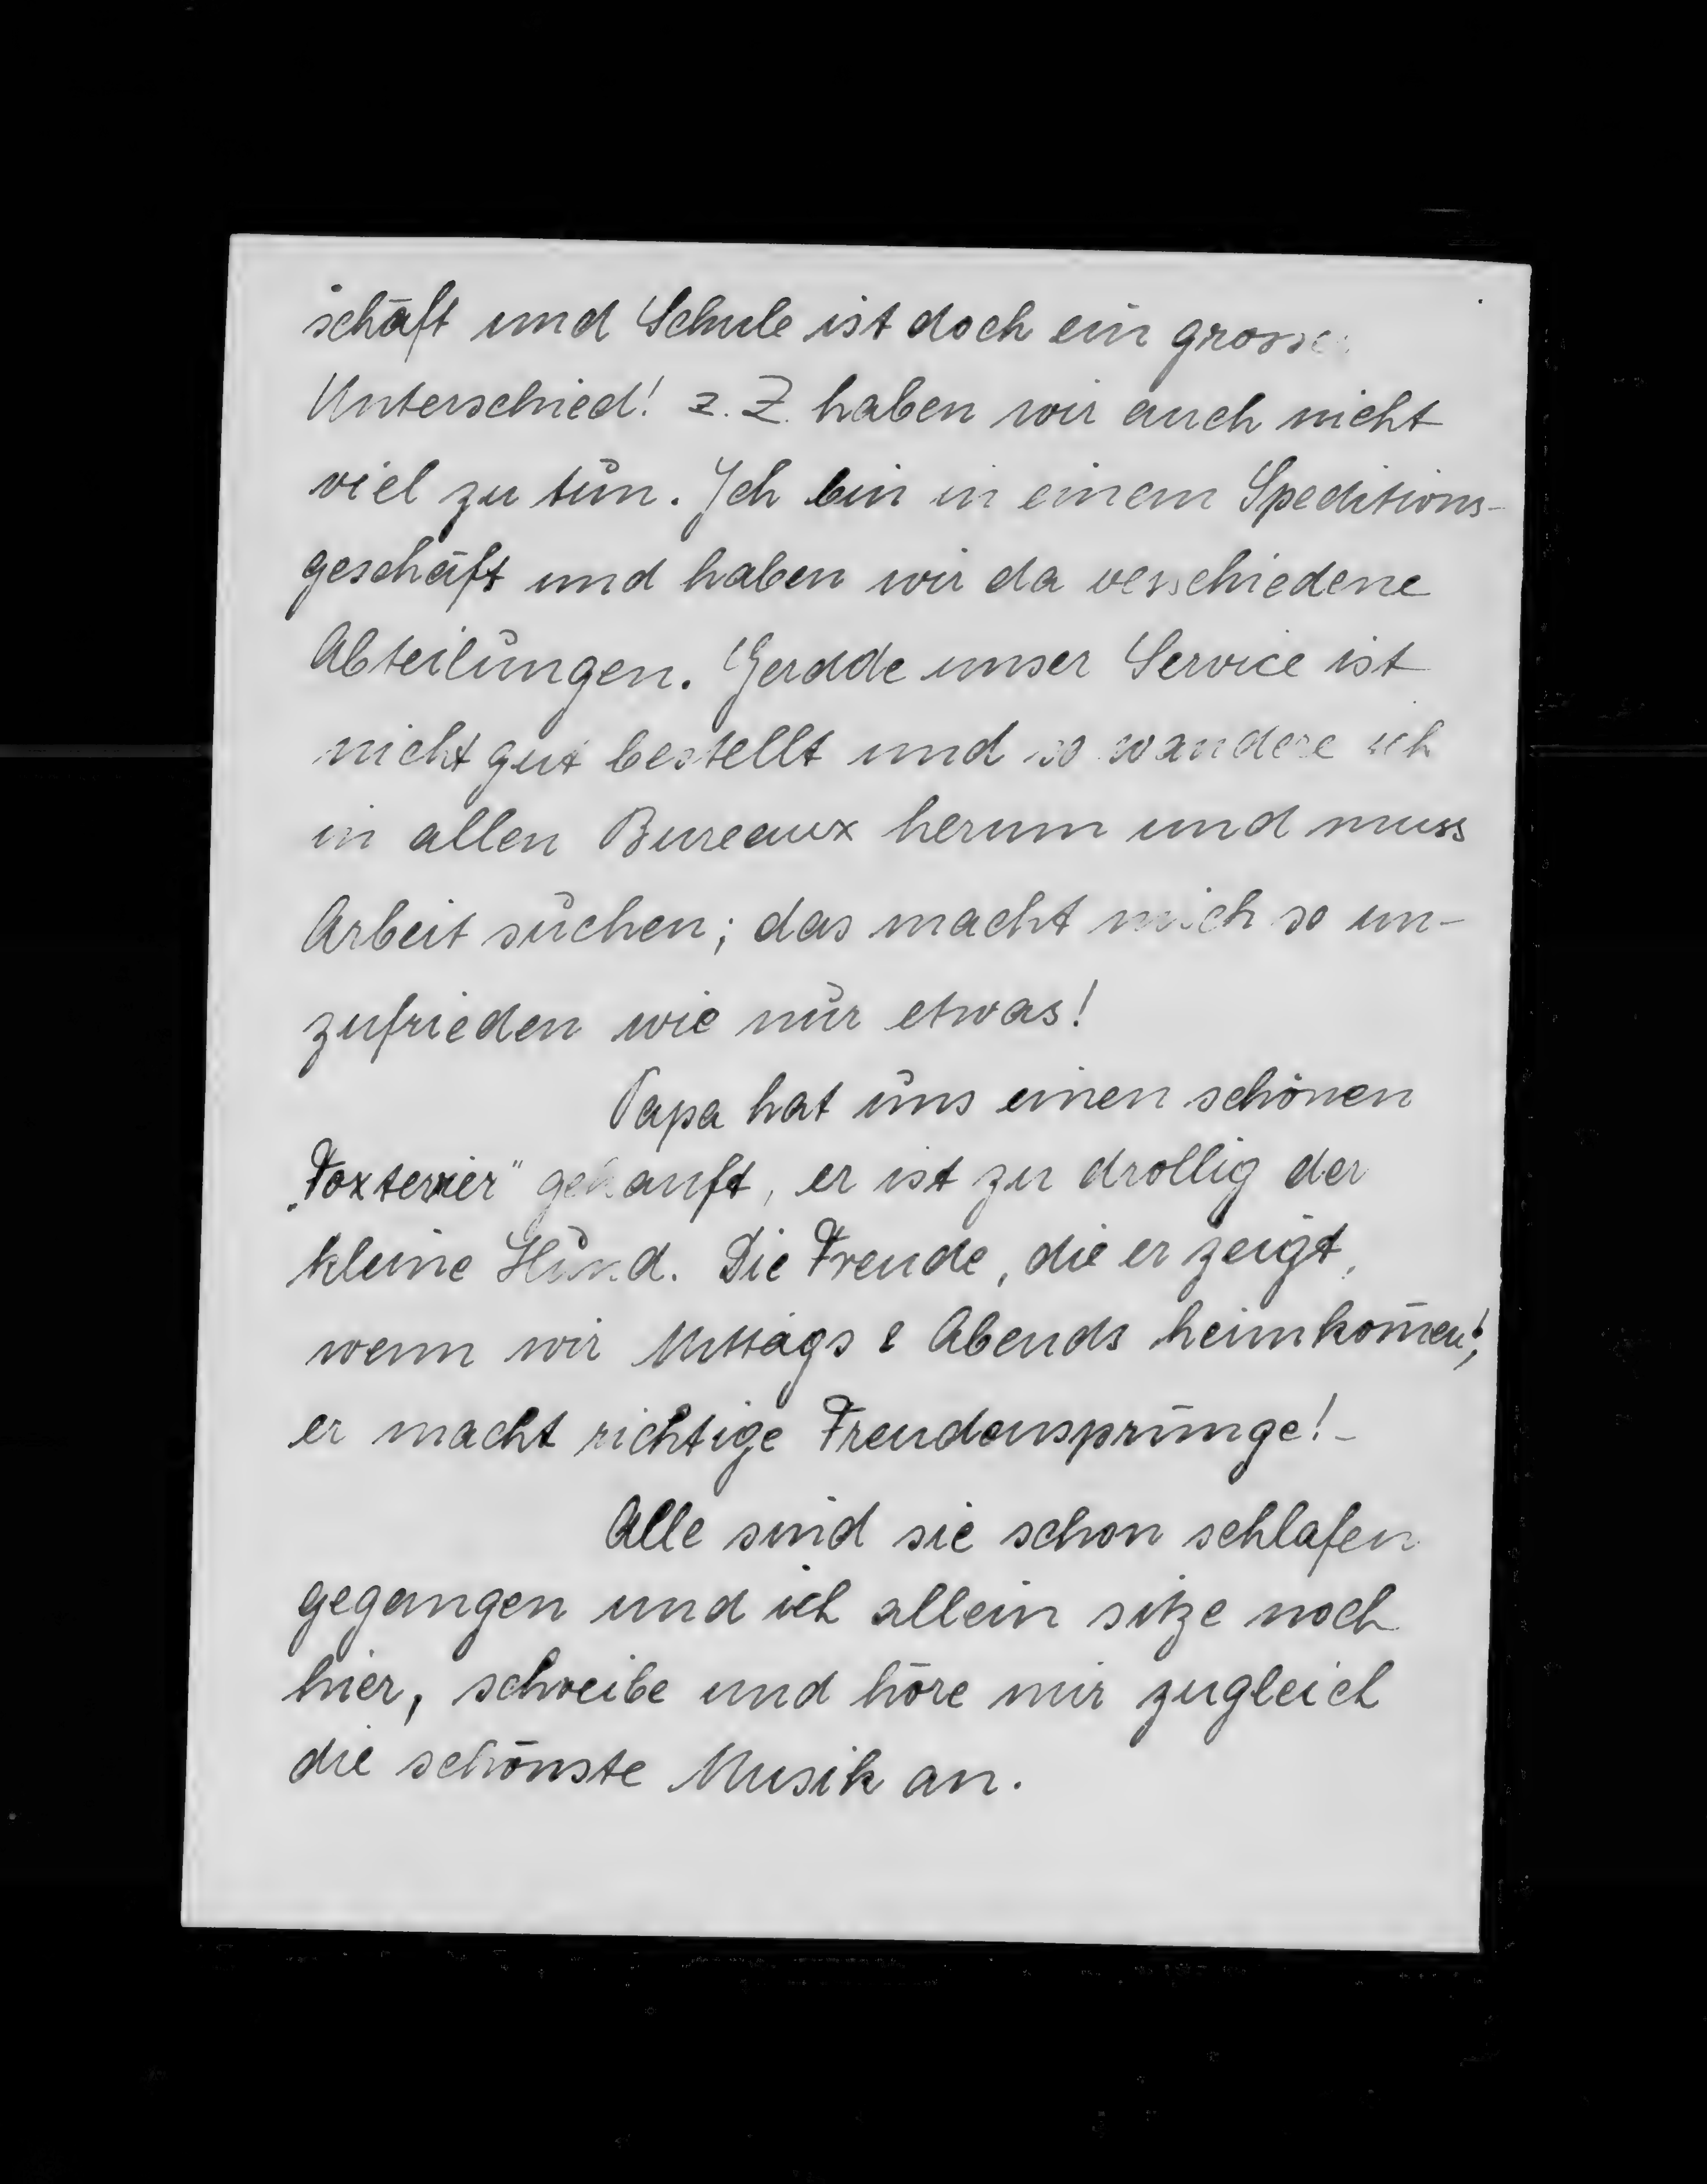 schäft und Schule ist doch ein grosser
Unterschied! z. Z. haben wir auch nicht
viel zu tun. Ich bin in einem Speditions-
geschäft und haben wir da verschiedene
Abteilungen. Gerade unser Service ist
nicht gut bestellt und so wandere ich
in allen Bureaux herum und muss
Arbeit suchen; das macht mich so un-
zufrieden wie nur etwas!
Papa hat uns einen schönen
„Foxterrier" gekauft, er ist zu drollig der
kleine Hund. Die Freude, die er zeigt,
wenn wir Mittags & Abends heimkom̄en!,
er macht richtige Freudensprünge! -
Alle sind sie schon schlafen
gegangen und ich allein sitze noch
hier, schreibe und höre mir zugleich
die schönste Musik an.